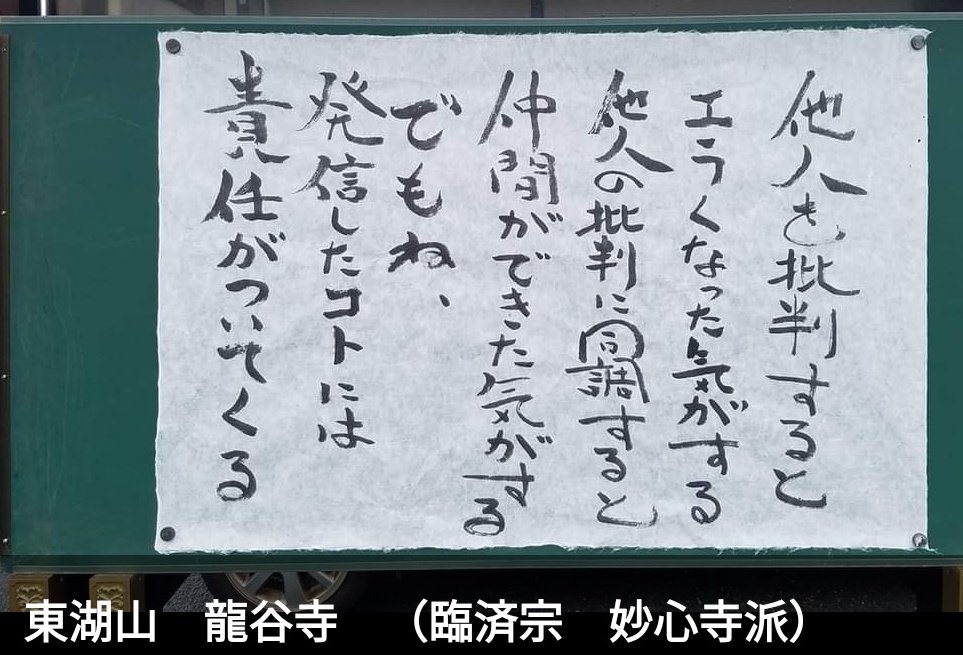 他人を批判すると
エラくなった気がする
他人の批判に同調すると
仲間ができた気がする
でもね、
発信したコトには
責任がついてくる
東湖山　龍谷寺　（臨済宗　妙心寺派）